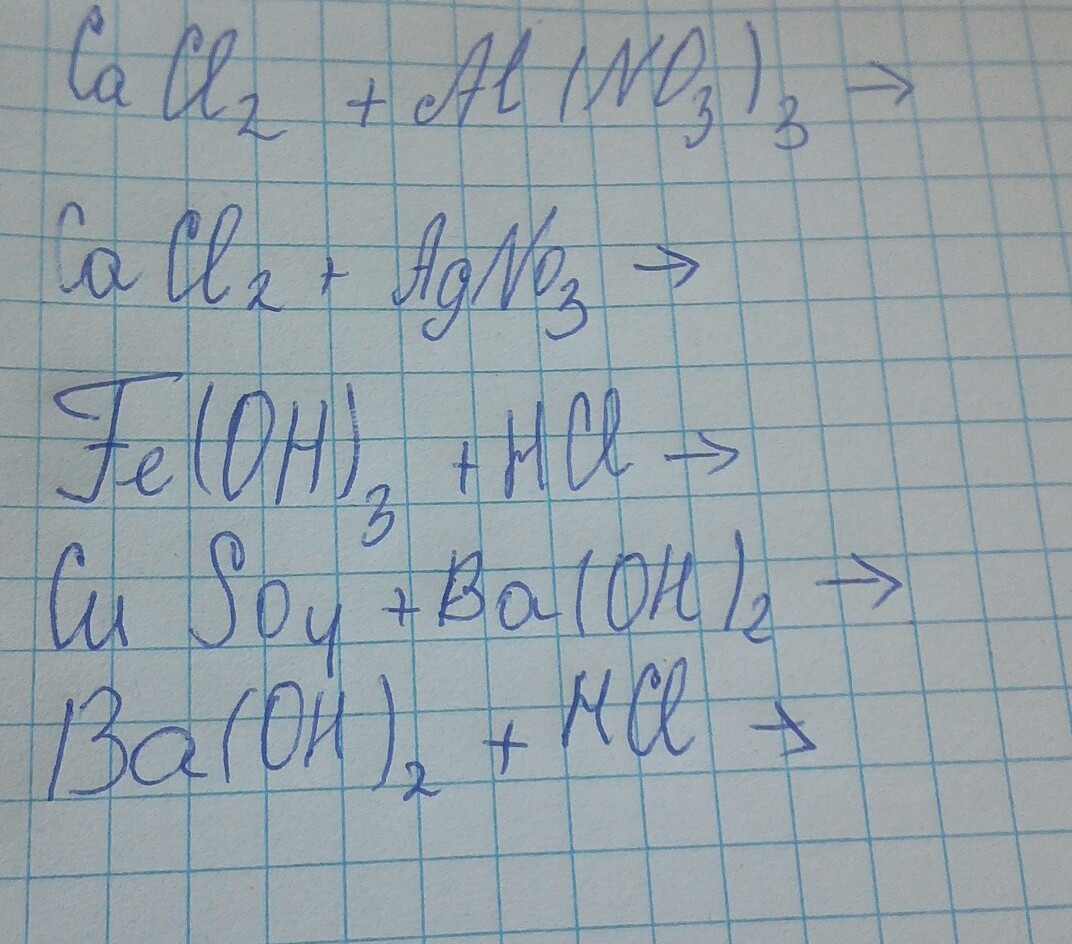 CaCl₂ + Al(NO₃)₃ →
CaCl₂ + AgNO₃ →
Fe(OH)₃ + HCl →
CuSO₄ + Ba(OH)₂ →
Ba(OH)₂ + HCl →